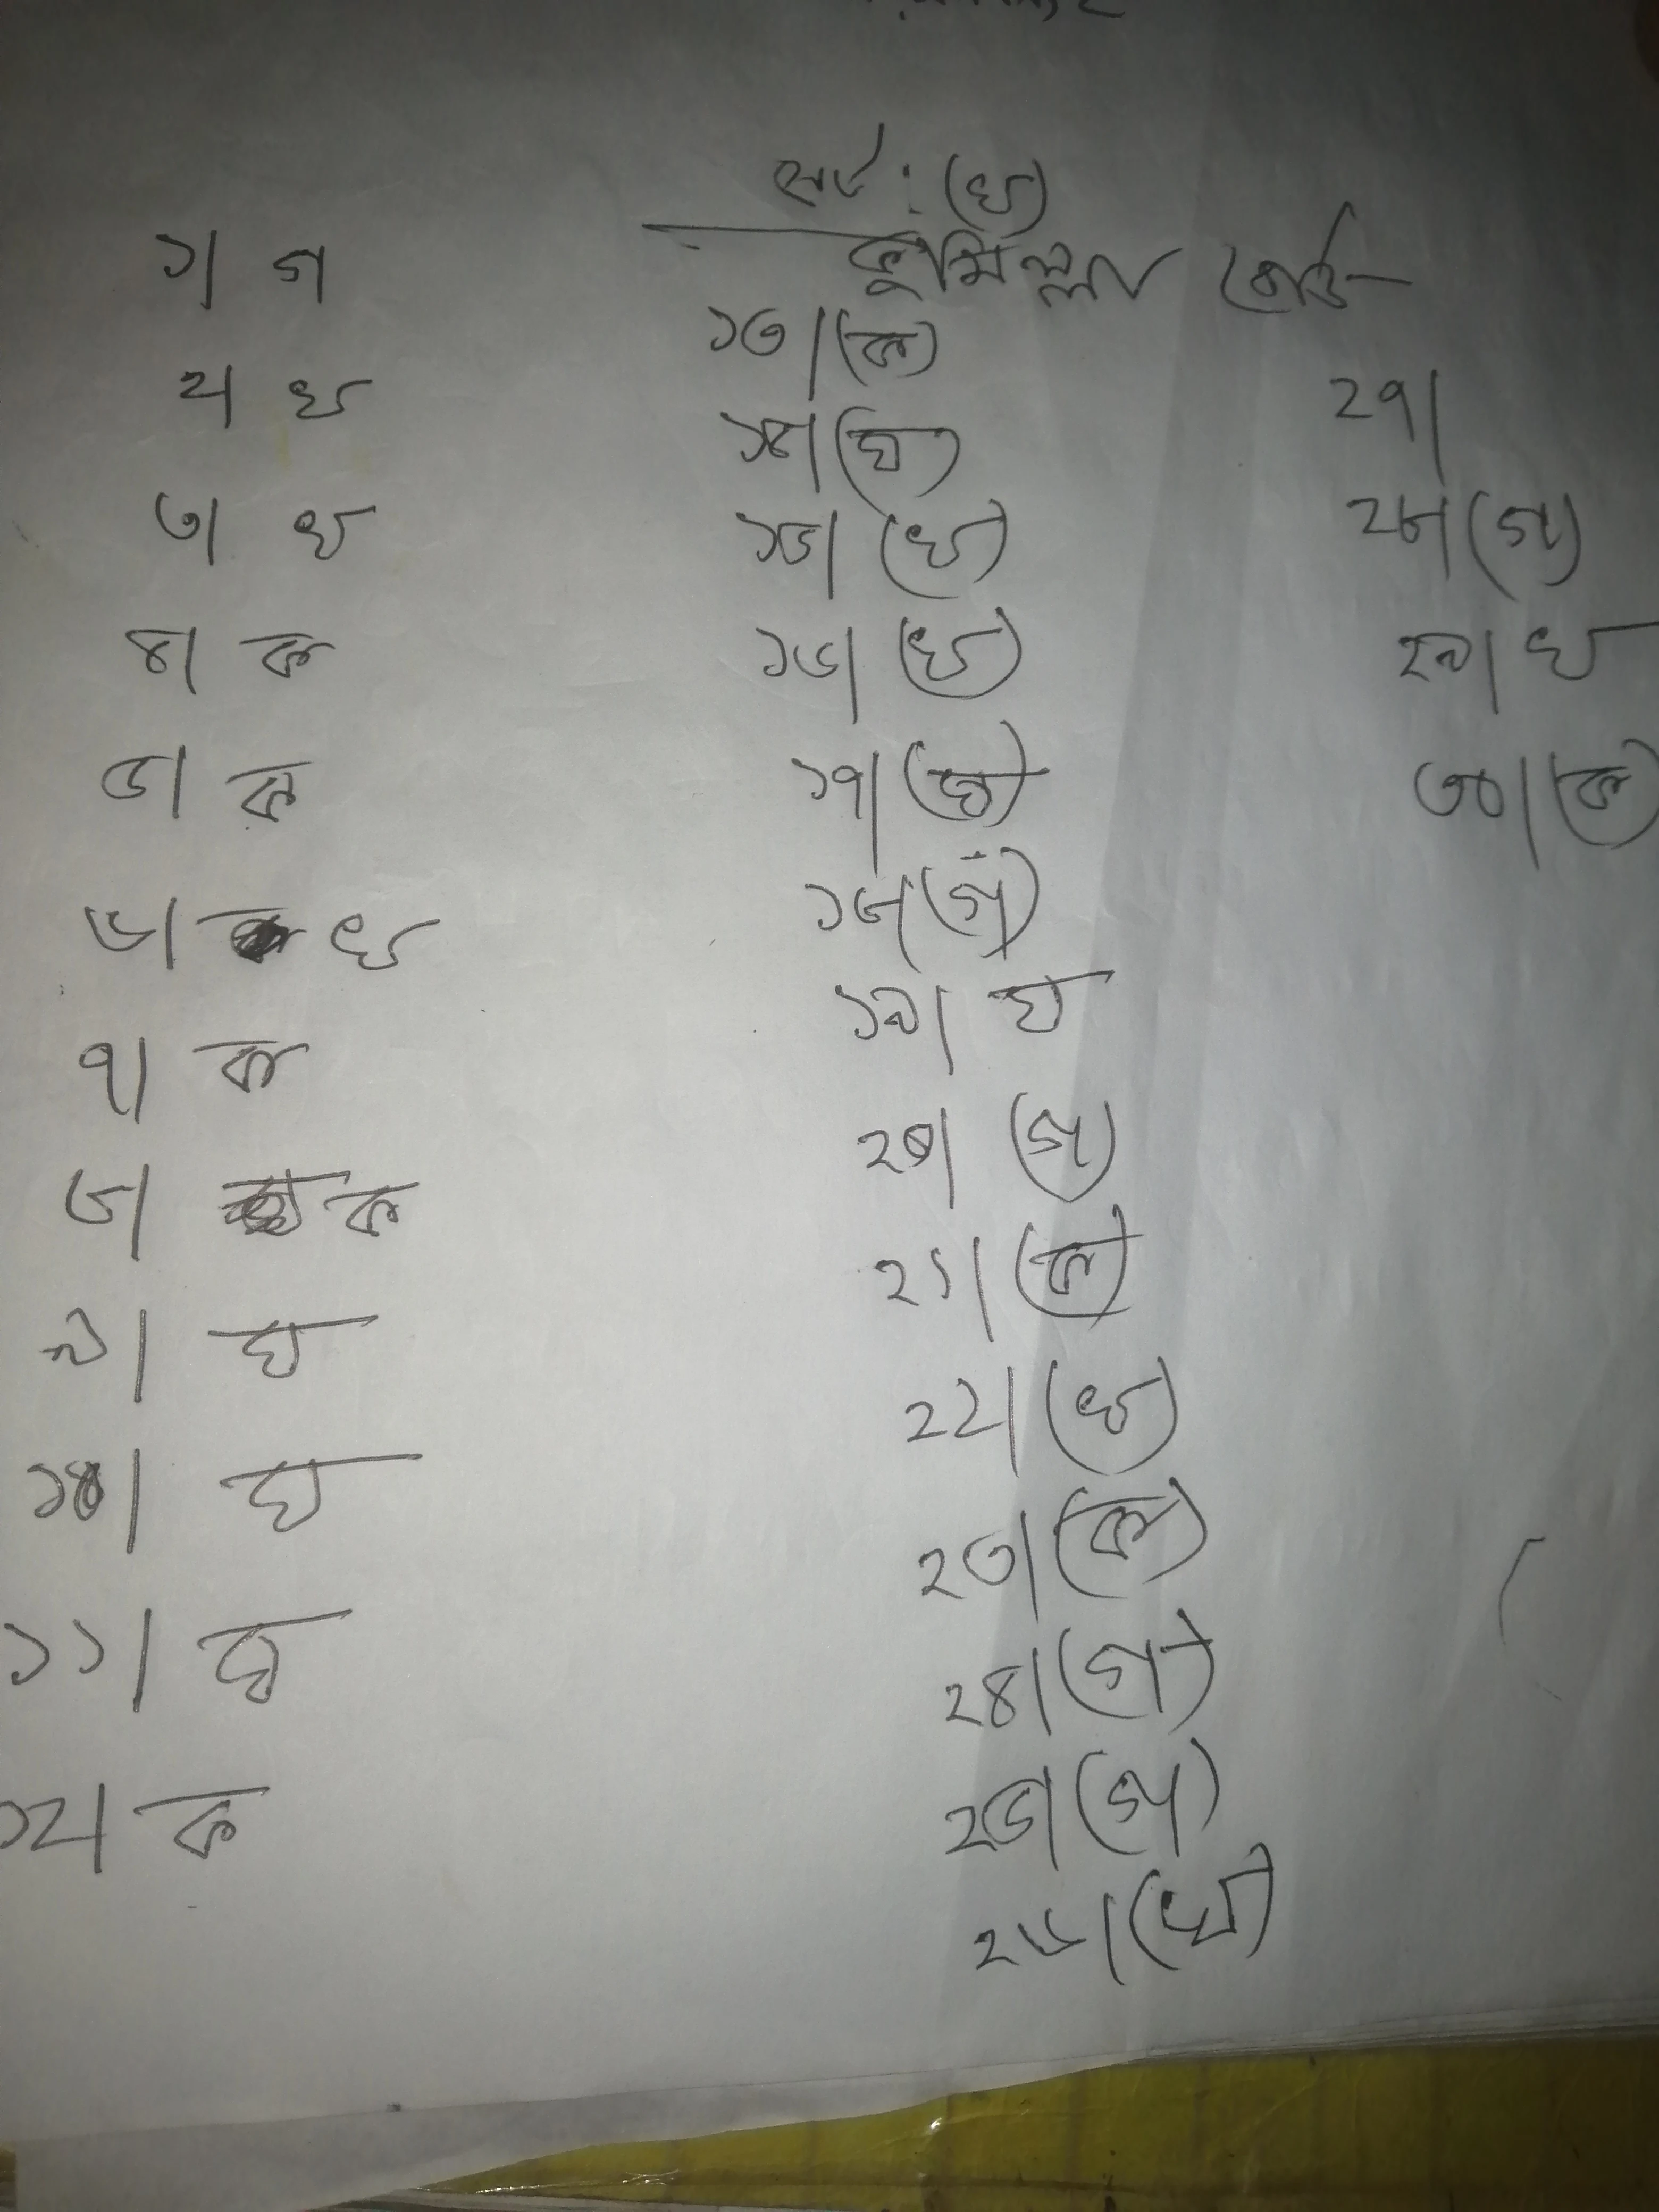 সেট : (খ)
কুমিল্লা বোর্ড
১। গ
২। খ
৩। খ
৪। ক
৫। ক
৬। খ
৭। ক
৮। ক
৯। ঘ
১০। ঘ
১১। ঘ
১২। ক
১৩। (ক)
১৪। (ঘ)
১৫। (খ)
১৬। (খ)
১৭। (ঘ)
১৮। (গ)
১৯। ঘ
২০। (গ)
২১। (ক)
২২। (খ)
২৩। (ক)
২৪। (গ)
২৫। (গ)
২৬। (খ)
২৭।
২৮। (গ)
২৯। খ
৩০। (ক)